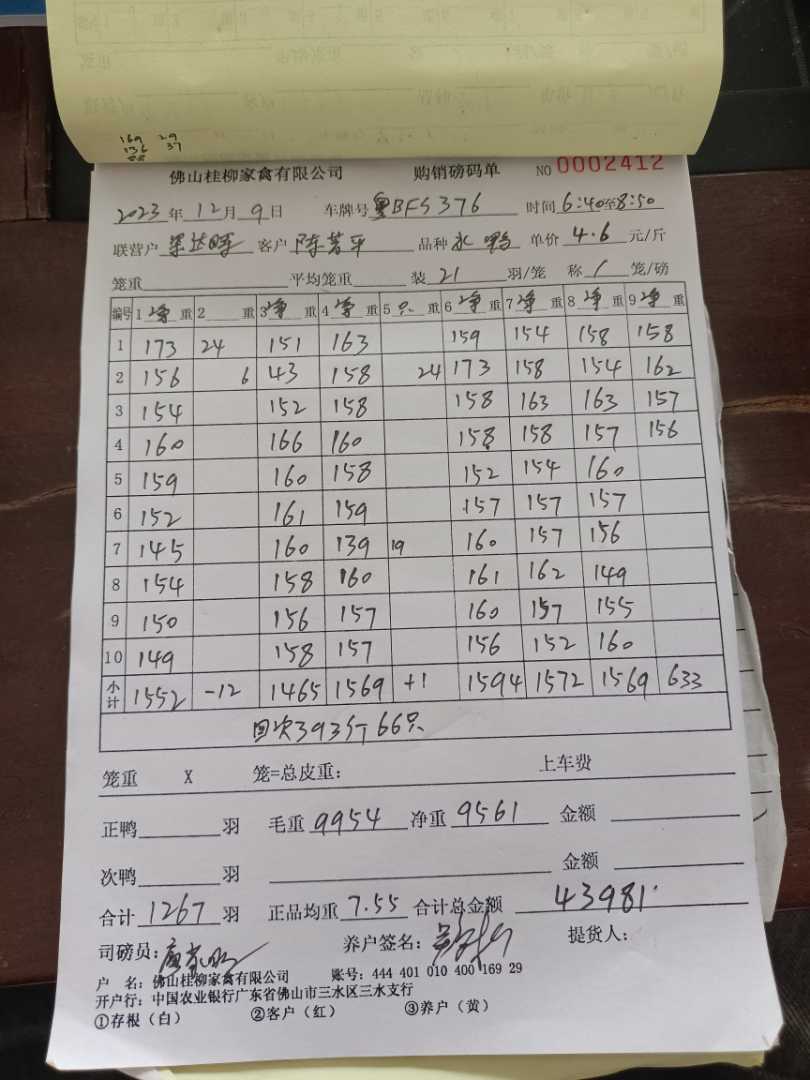 169 29
136 37
佛山桂柳家禽有限公司 购销磅码单 NO 0002412
2023年12月9日 车牌号粤BFS376 时间6:40至8:50
联营户 客户 品种水鸭 单价4.6元/斤
笼重 平均笼重 装21羽/笼 称1笼/磅
编号 1净重 2重 3净重 4净重 5只重 6净重 7净重 8净重 9净重
1 173 24 151 163 159 154 158 158
2 156 6 43 158 24 173 158 154 162
3 154 152 158 158 163 163 157
4 160 166 160 158 158 157 156
5 159 160 158 152 154 160
6 152 161 159 157 157 157
7 145 160 139 19 160 157 156
8 154 158 160 161 162 149
9 150 156 157 160 157 155
10 149 158 157 156 152 160
小计 1552 -12 1465 1569 +1 1594 1572 1569 633
回次393斤66只
笼重 X 笼=总皮重: 上车费
正鸭 羽 毛重9954 净重9561 金额
次鸭 羽 金额
合计1267羽 正品均重7.55 合计总金额43981
司磅员: 养户签名: 提货人:
户 名: 佛山桂柳家禽有限公司 账号: 444 401 010 400 169 29
开户行: 中国农业银行广东省佛山市三水区三水支行
①存根(白) ②客户(红) ③养户(黄)